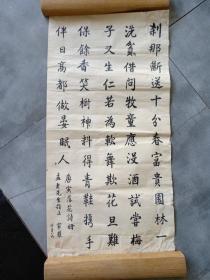 刹那斷送十分春富貴園林一
洗貧借問牧童應沒酒試嘗梅
子又生仁若為軟舞欺花旦難
保餘香笑樹神料得青鞋携手
伴日高都做晏眠人
唐寅落花詩
先生指正